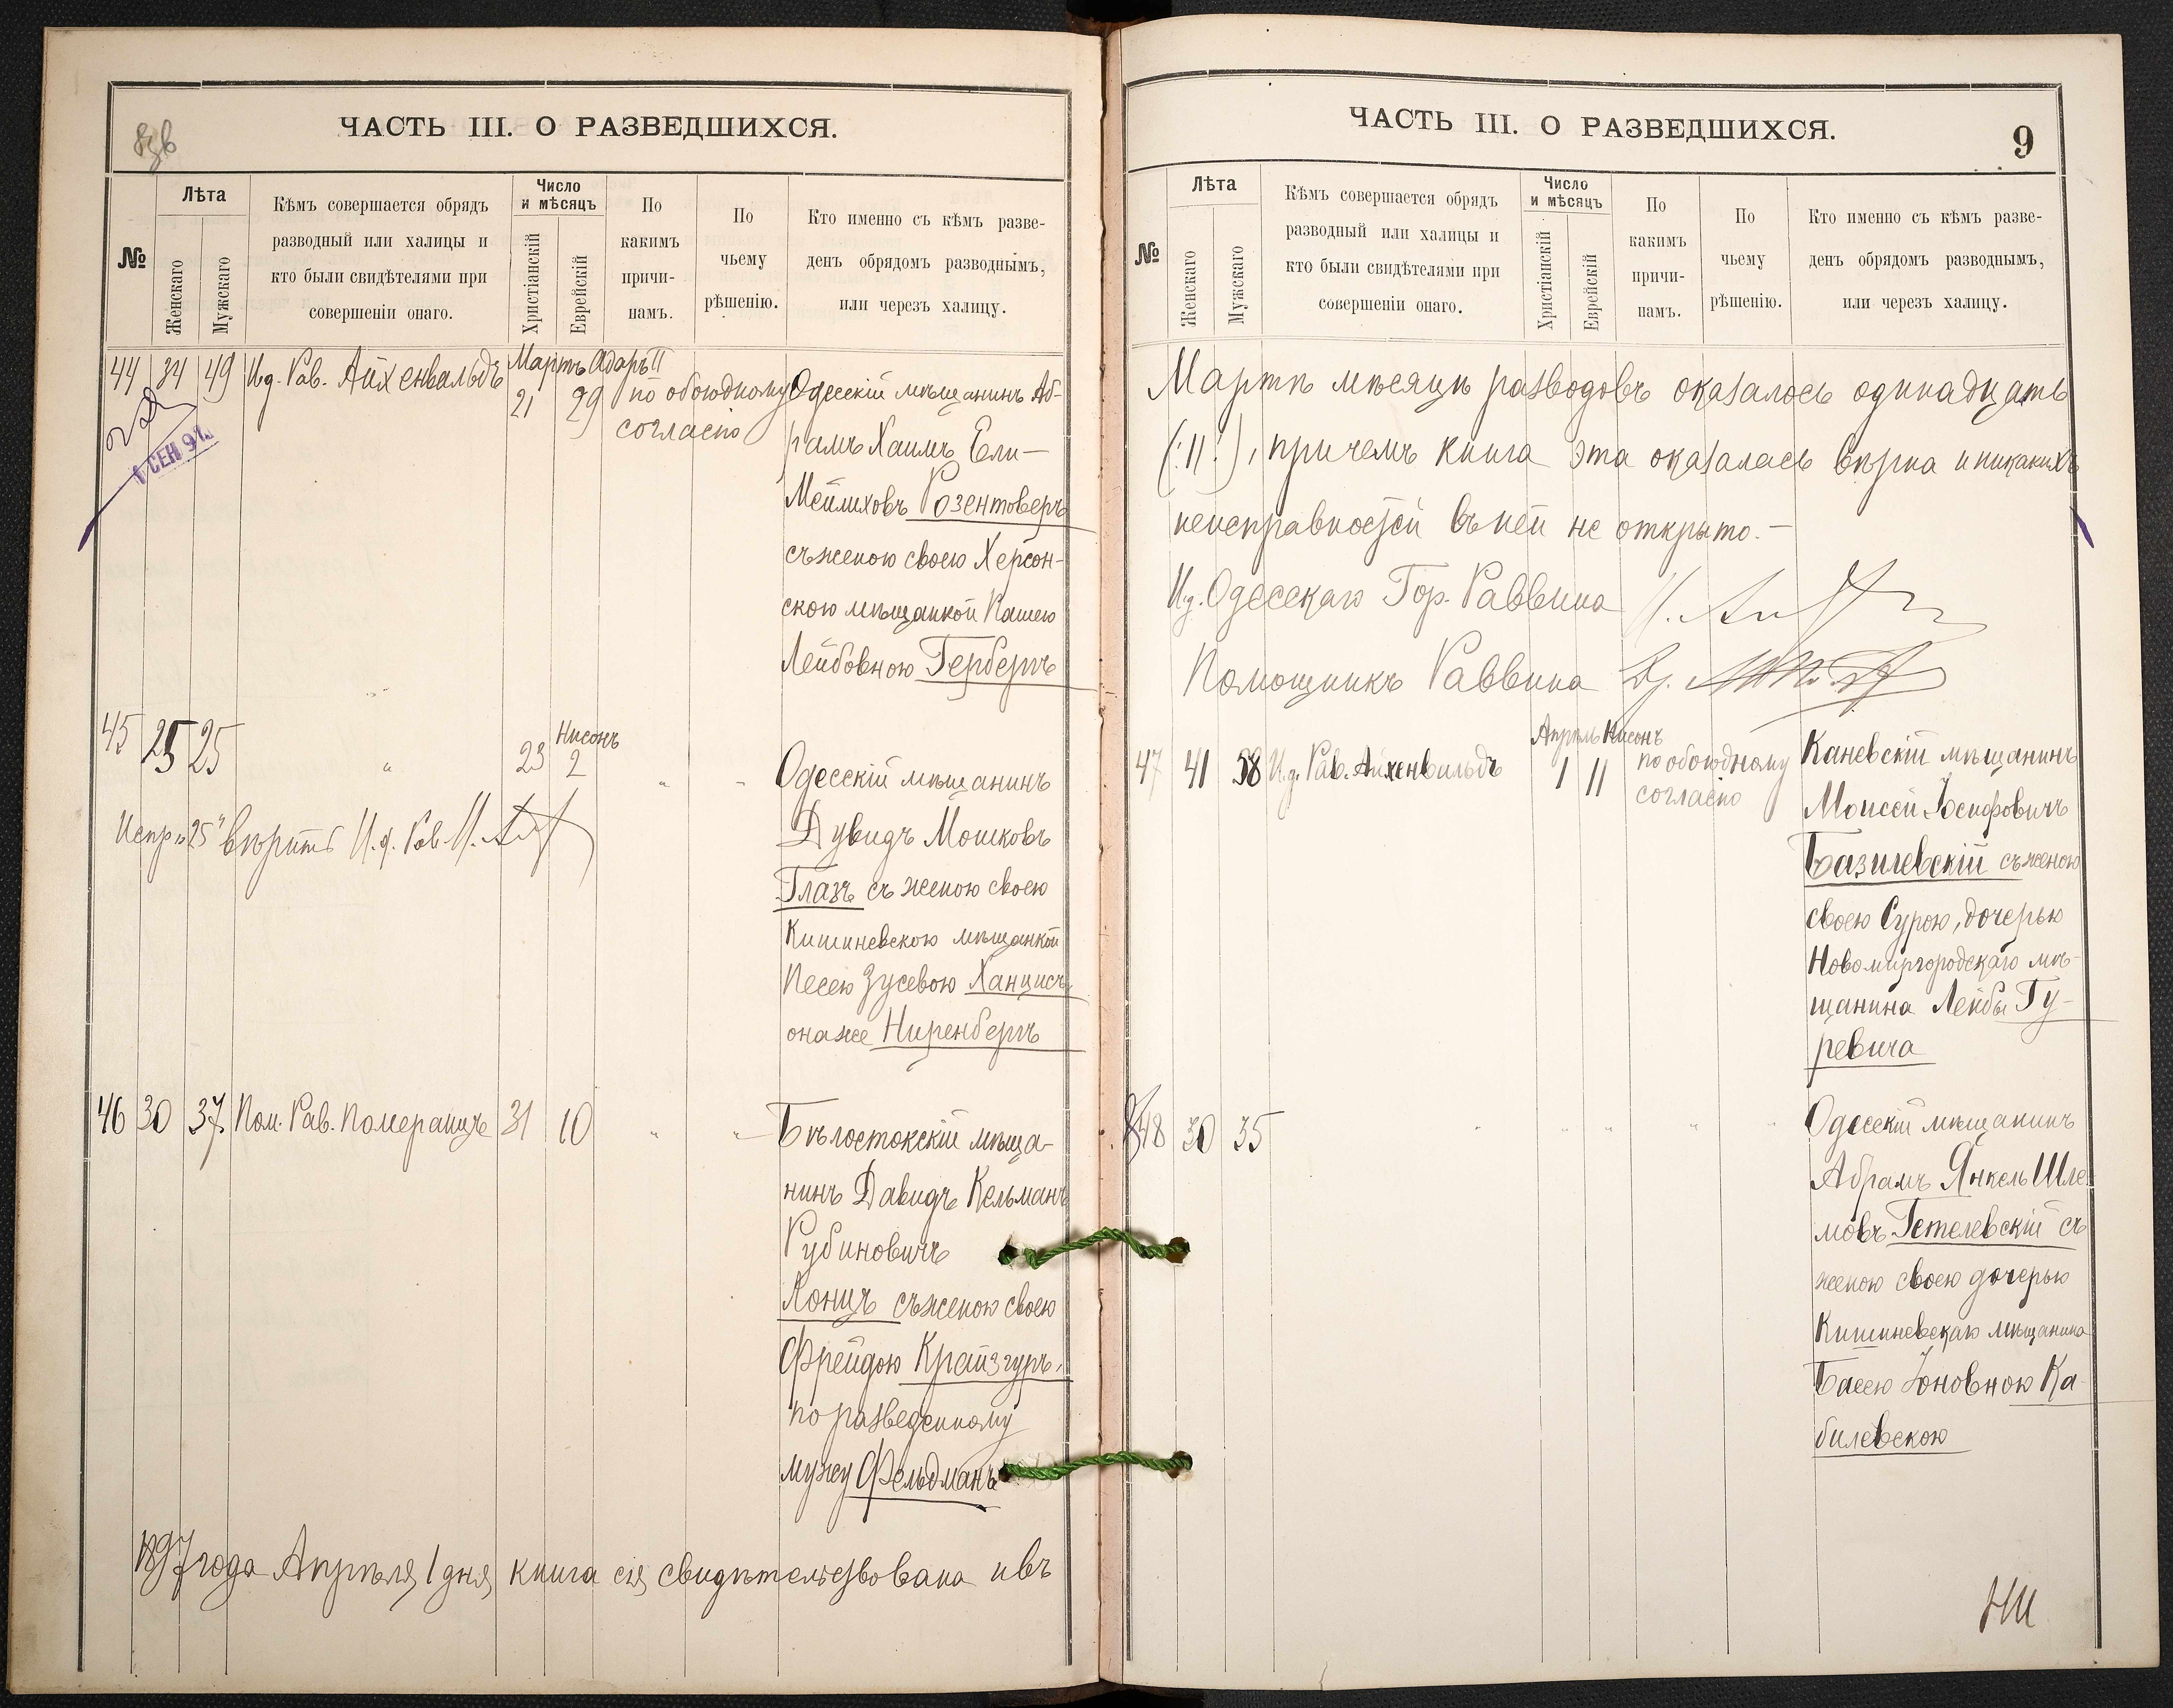 ЧАСТЬ III. О РАЗВЕДШИХСЯ.
№
Лѣта
Женскаго
Мужскаго
Кѣмъ совершается обрядъ
разводный или халицы и
кто были свидѣтелями при
совершеніи онаго.
Число
и мѣсяцъ
Христіанскій
Еврейскій
По
какимъ
причи-
намъ.
По
чьему
рѣшенію.
Кто именно съ кѣмъ разве-
денъ обрядомъ разводнымъ,
или черезъ халицу.
Мартъ Адаръ II
44 34 49 И.д. Рав. Айхенвальдъ 21 29 по обоюдному Одесскій мѣщанинъ Аб-
согласію рамъ Хаимъ Ели-
СЕН 97
Мейлиховъ Розентоверъ
съ женою своею Херсон-
скою мѣщанкой Кашею
Лейбовною Герберъ
Нисонъ
45 25 25 " 23 2 " " Одесскій мѣщанинъ
Испр. "25" вѣрить И.д. Рав.
Дувидъ Мошковъ
Глазъ съ женою своею
Кишиневскою мѣщанкой
Песею Зусевою Ханцисъ
она же Ниренбергъ
46 30 37 Пом. Рав. Померанцъ 31 10 " " Бѣлостокскій мѣща-
нинъ Давидъ Кельманъ
Рубиновичъ
Лонцъ съ женою своею
Фрейдою Крайзгуръ,
по разведенному
мужу Фельдманъ
1897 года Апрѣля 1 дня книга сія свидѣтельствована и въ
ЧАСТЬ III. О РАЗВЕДШИХСЯ.
9
№
Лѣта
Женскаго
Мужскаго
Кѣмъ совершается обрядъ
разводный или халицы и
кто были свидѣтелями при
совершеніи онаго.
Число
и мѣсяцъ
Христіанскій
Еврейскій
По
какимъ
причи-
намъ.
По
чьему
рѣшенію.
Кто именно съ кѣмъ разве-
денъ обрядомъ разводнымъ,
или черезъ халицу.
Мартѣ мѣсяцѣ разводовъ оказалось одинадцать
(:11:), причемъ книга эта оказалась вѣрна и никакихъ
неисправностей въ ней не открыто.—
И.д. Одесскаго Гор. Раввина
Помощникъ Раввина
Апрѣль Нисонъ
47 41 38 И.д. Рав. Айхенвальдъ 1 11 по обоюдному Каневскій мѣщанинъ
согласію Моисей Іосифовичъ
Базилевскій съ женою
своею Сурою, дочерью
Новомиргородскаго мѣ-
щанина Лейбы Гу-
ревича
48 30 35 " " " " " Одесскій мѣщанинъ
Абрамъ Янкель Шле-
мовъ Гетелевскій съ
женою своею дочерью
Кишиневскаго мѣщанина
Басею Іоновною Ка-
билевскою